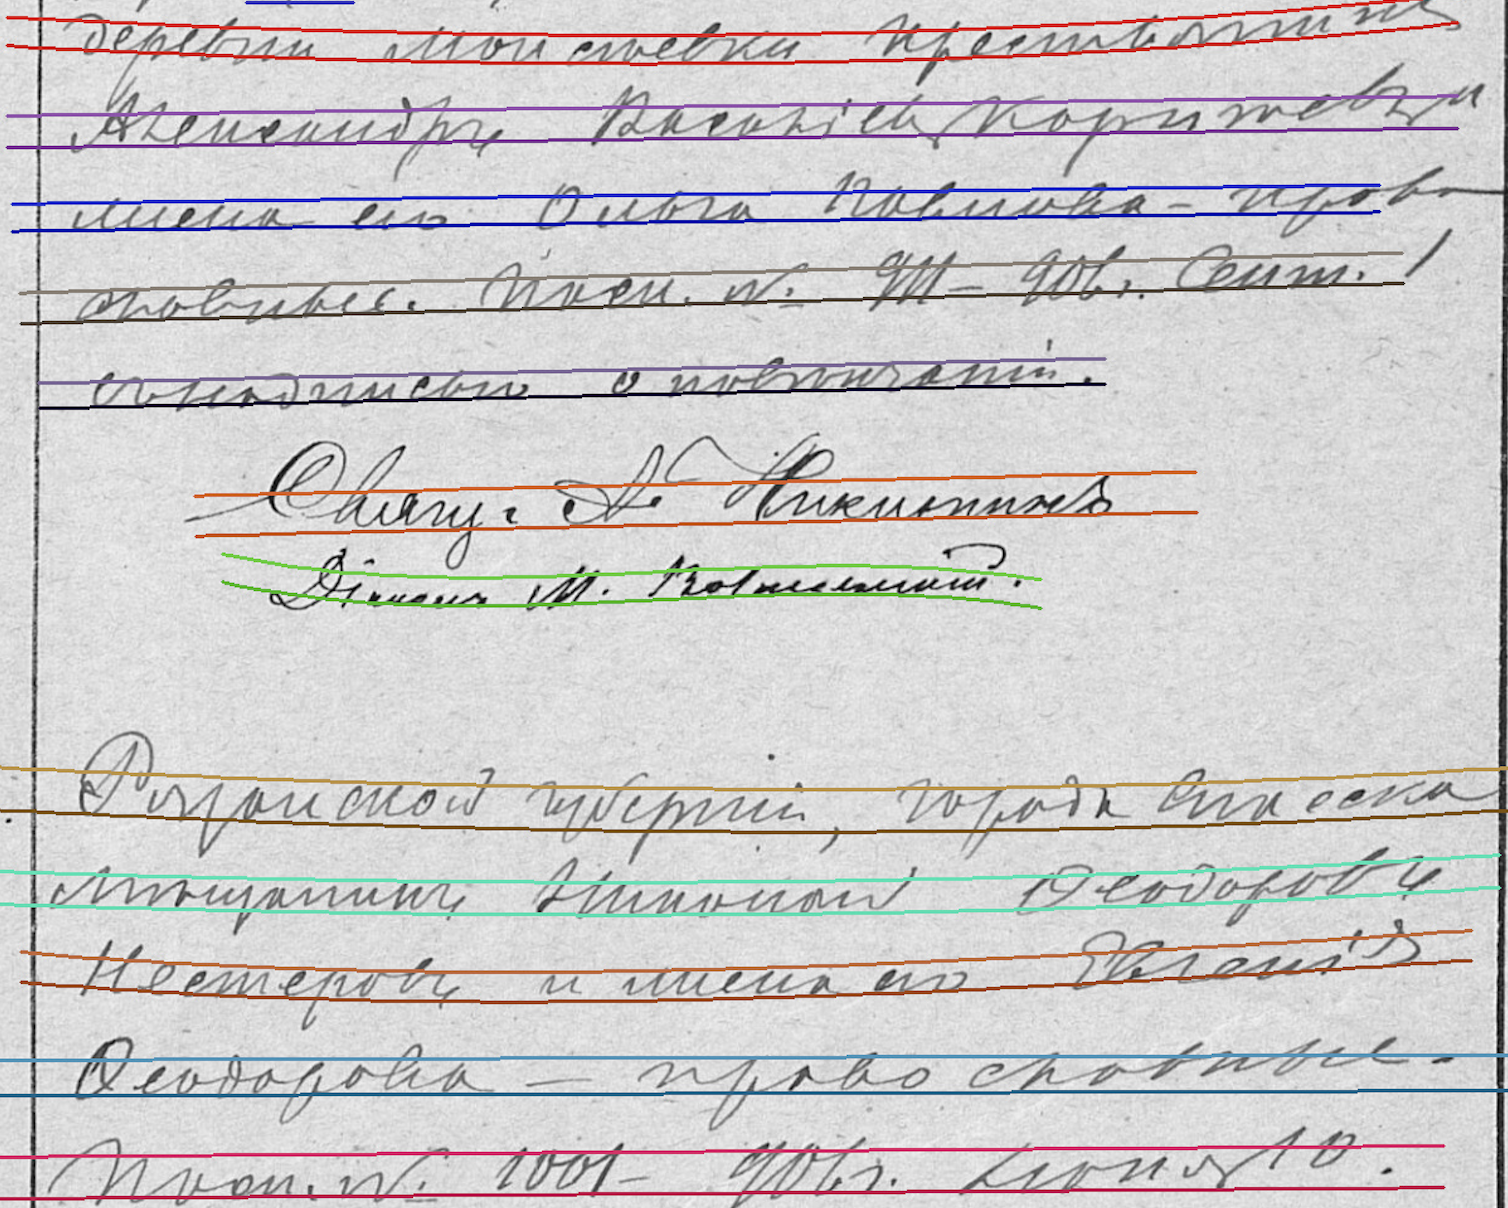 деревни Моисеевки крестьянинъ
Александръ Васильевъ и
жена его Ольга Павлова - право
славные. Посл. № 911 - 906 г. Сент. 1
съ надписью о повѣнчаніи.
Свящ. А. Никитинъ
Діаконъ М.
Рязанской губерніи, города Спасска
мѣщанинъ Николай Ѳеодоровъ
Нестеровъ и жена его Евгенія
Ѳеодорова - православные.
Посл. № 1001 - 906 г. Іюня 10.